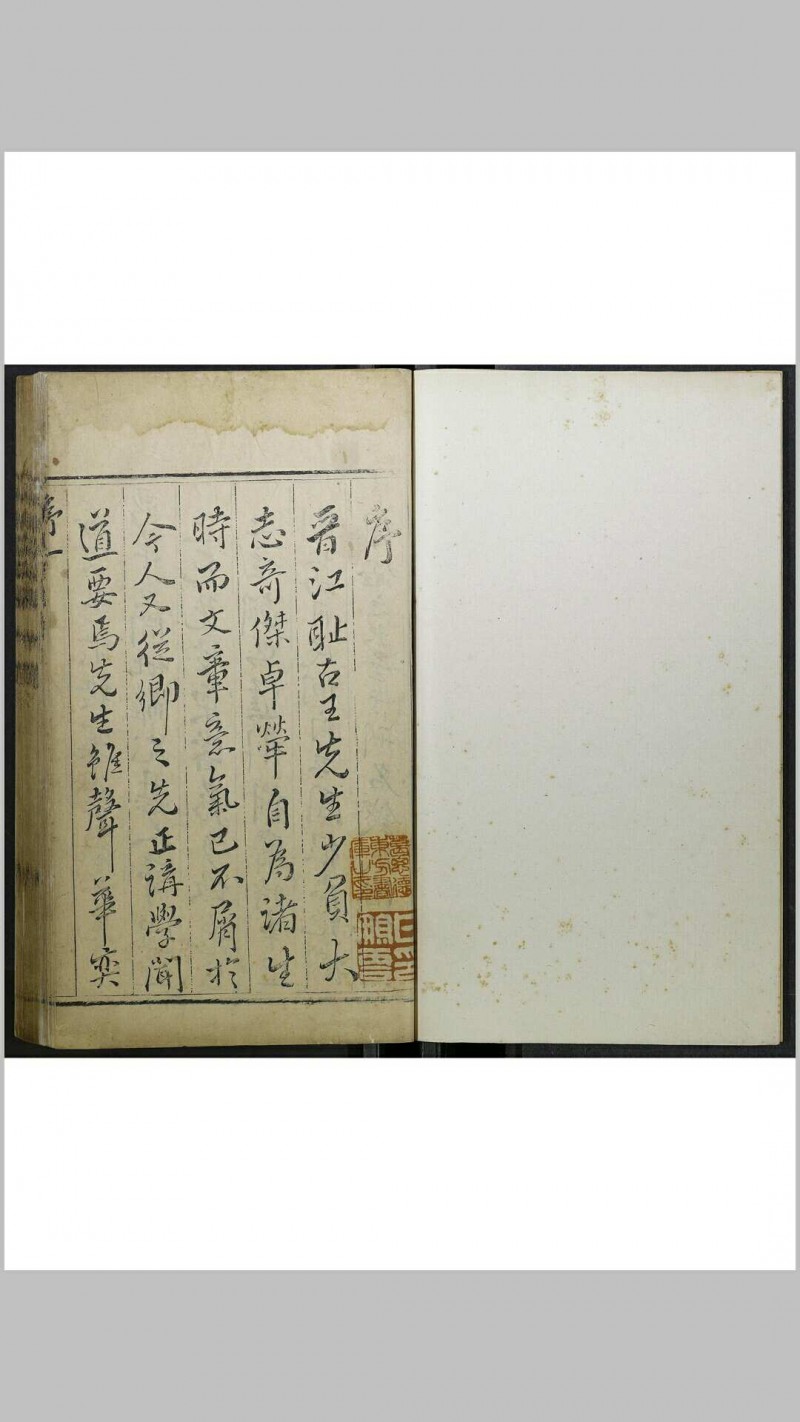 序
晉江耻古王先生少負大
志奇傑卓犖自為諸生
時而文章意氣已不屑於
今人又從鄉之先正講學聞
道要焉先生雖聲華奕
序一